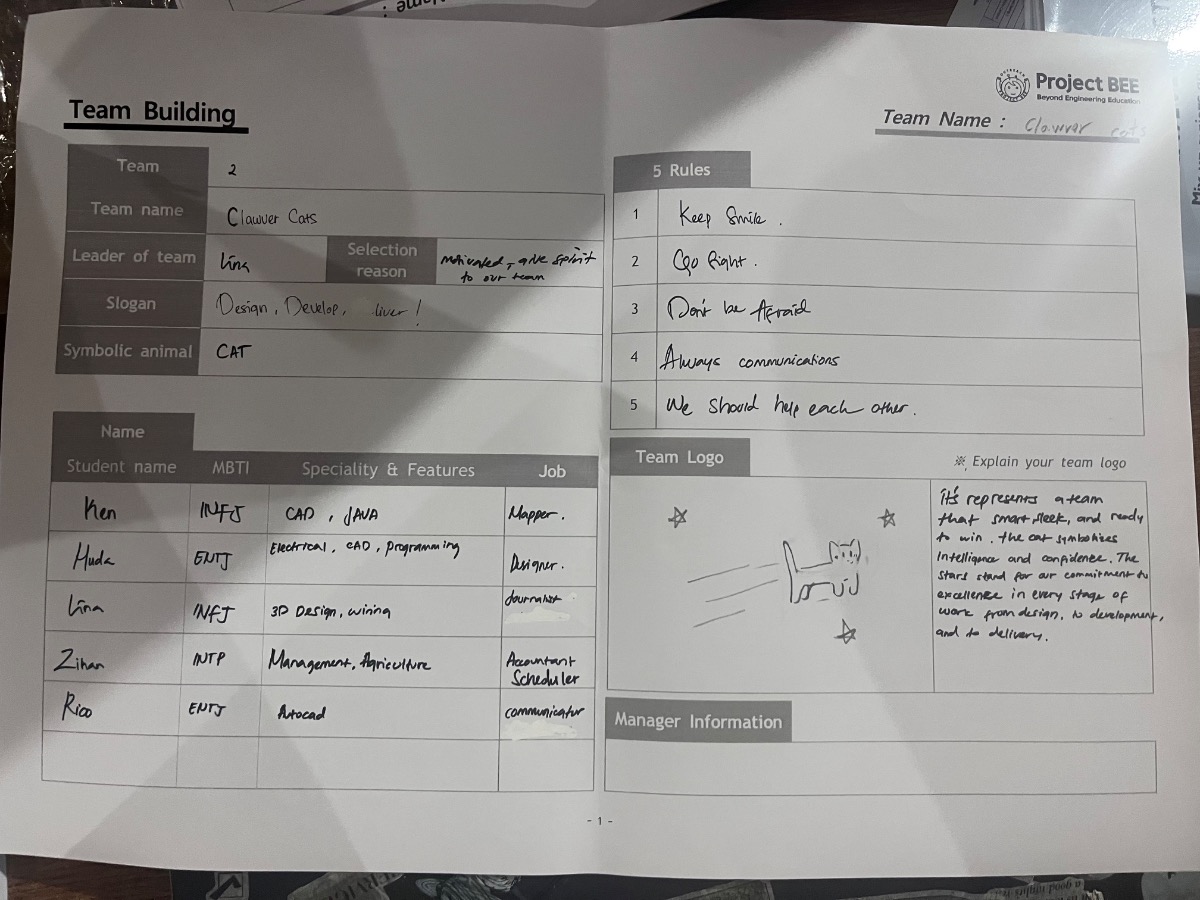 Team Building
Project BEE
Beyond Engineering Education
Team Name : Clawver cats
Team 2
Team name Clawver Cats
Leader of team Lina Selection reason Motivated, give spirit to our team
Slogan Design, Develop, liver!
Symbolic animal CAT
Name
Student name MBTI Speciality & Features Job
Ken INFJ CAD, JAVA Mapper.
Huda ENTJ Electrical, CAD, Programming Designer.
Lina INFJ 3D Design, wiring Journalist
Zihan INTP Management, Agriculture Accountant Scheduler
Rico ENTJ Autocad communicator
5 Rules
1 Keep Smile.
2 Go Right.
3 Don't be Afraid
4 Always communications
5 We should help each other.
Team Logo
※ Explain your team logo
it's represents a team
that smart, sleek, and ready
to win. the cat symbolizes
Intelligence and confidence. The
stars stand for our commitment to
excellence in every stage of
work from design, to development,
and to delivery.
Manager Information
- 1 -